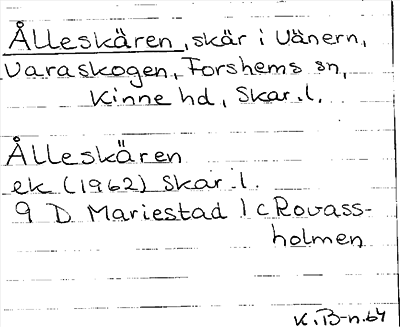 Ålleskären, skär i Vänern,
Varaskogen, Forshems sn,
Kinne hd, Skar.l.
Ålleskären
ek (1962) Skar.l.
9 D Mariestad 1c Rovass-
holmen
K.B-n.64